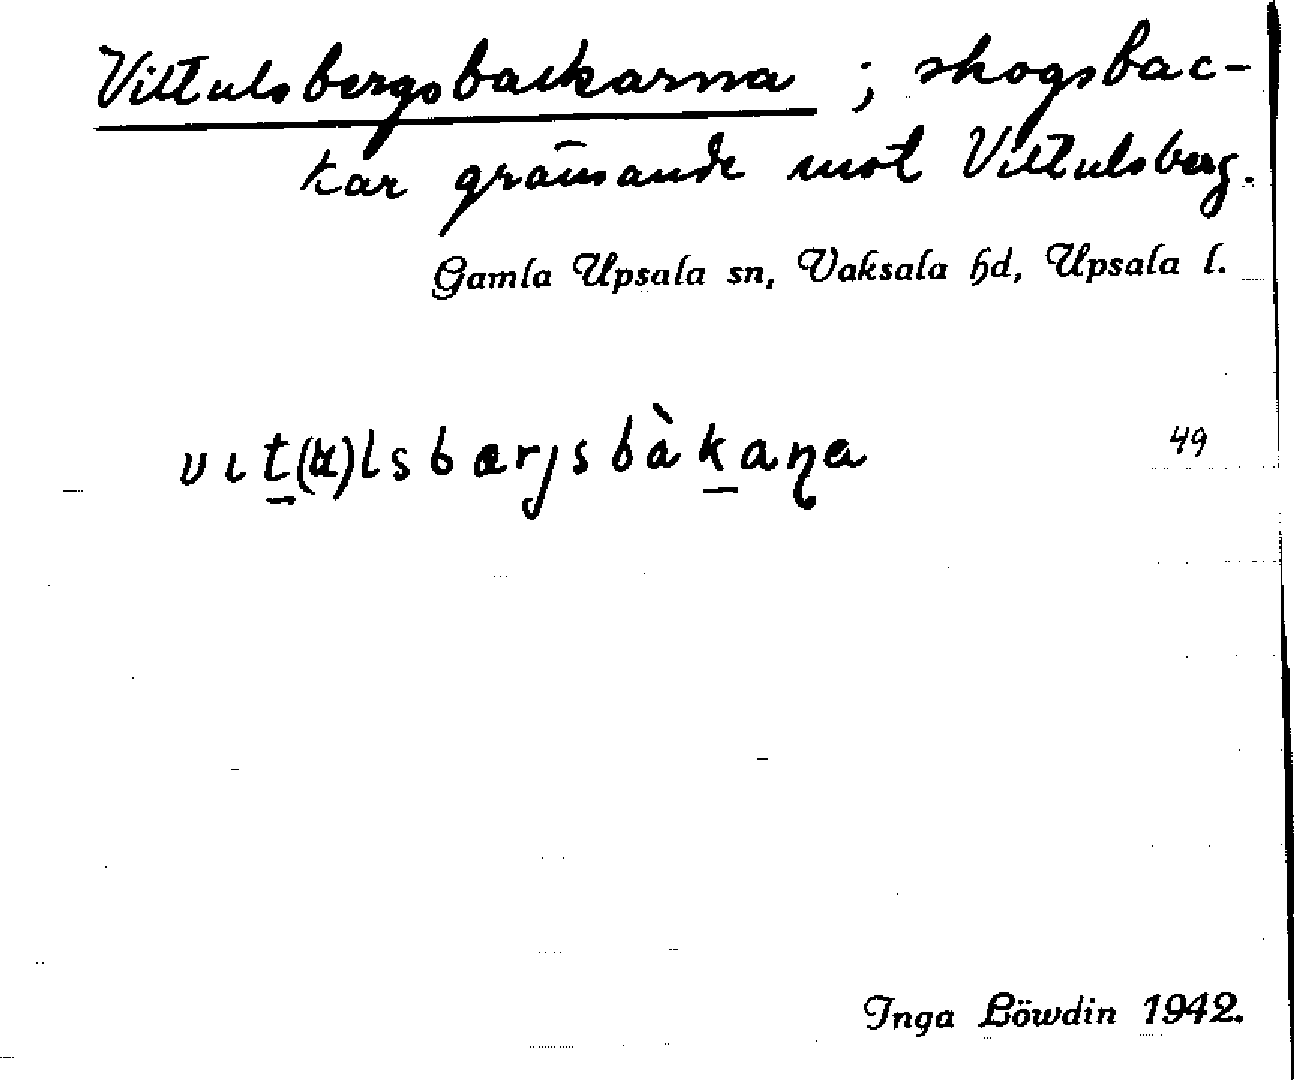 Vittulsbergsbackarna ; skogsbac-
kar gränsande mot Vittulsberg.
Gamla Upsala sn, Vaksala hd, Upsala l.
vɩt̲(ʉ)lsbærjsbàk̲aɳa
49
Inga Löwdin 1942.